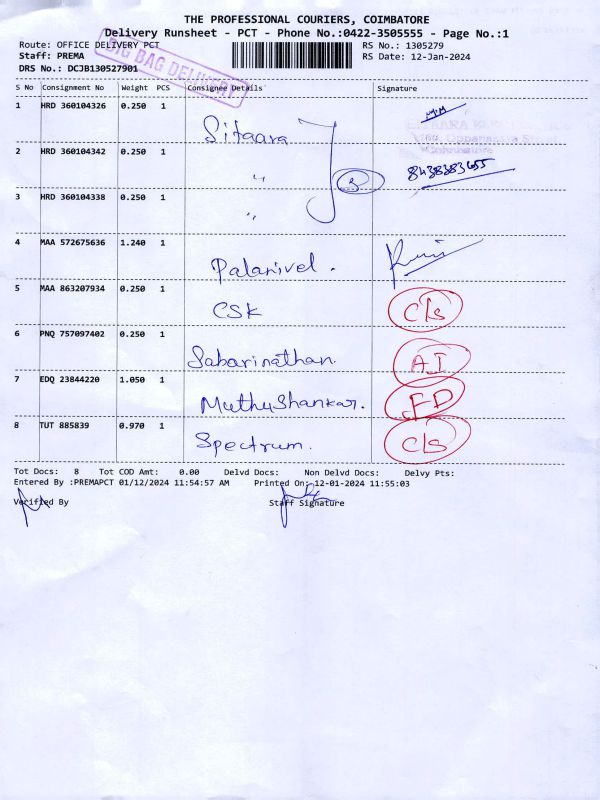 THE PROFESSIONAL COURIERS, COIMBATORE
Delivery Runsheet - PCT - Phone No.:0422-3505555 - Page No.:1
Route: OFFICE DELIVERY PCT RS No.: 1305279
Staff: PREMA RS Date: 12-Jan-2024
DRS No.: DCJB130527901
BIG BAG DELIVERY
S No Consignment No Weight PCS Consignee Details Signature
1 HRD 360104326 0.250 1 Sitaara
2 HRD 360104342 0.250 1 " 3 8438383655
3 HRD 360104338 0.250 1 "
4 MAA 572675636 1.240 1 Palanivel.
5 MAA 863207934 0.250 1 CSK C/s
6 PNQ 757097402 0.250 1 Sabarinathan. A.I
7 EDQ 23844220 1.050 1 Muthu Shankar. FD
8 TUT 885839 0.970 1 Spectrum. C/s
Tot Docs: 8 Tot COD Amt: 0.00 Delvd Docs: Non Delvd Docs: Delvy Pts:
Entered By :PREMAPCT 01/12/2024 11:54:57 AM Printed On: 12-01-2024 11:55:03
Verified By Staff Signature